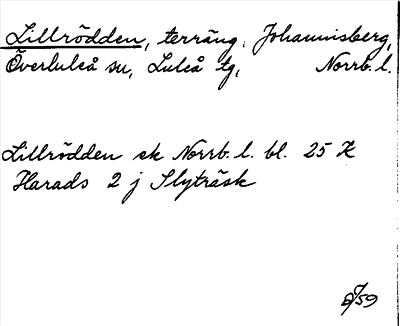 Lillrödden, terräng, Johannisberg,
Överluleå sn, Luleå tg, Norrb. l.
Lillrödden ek Norrb. l. bl. 25 K
Harads 2 j Slyträsk